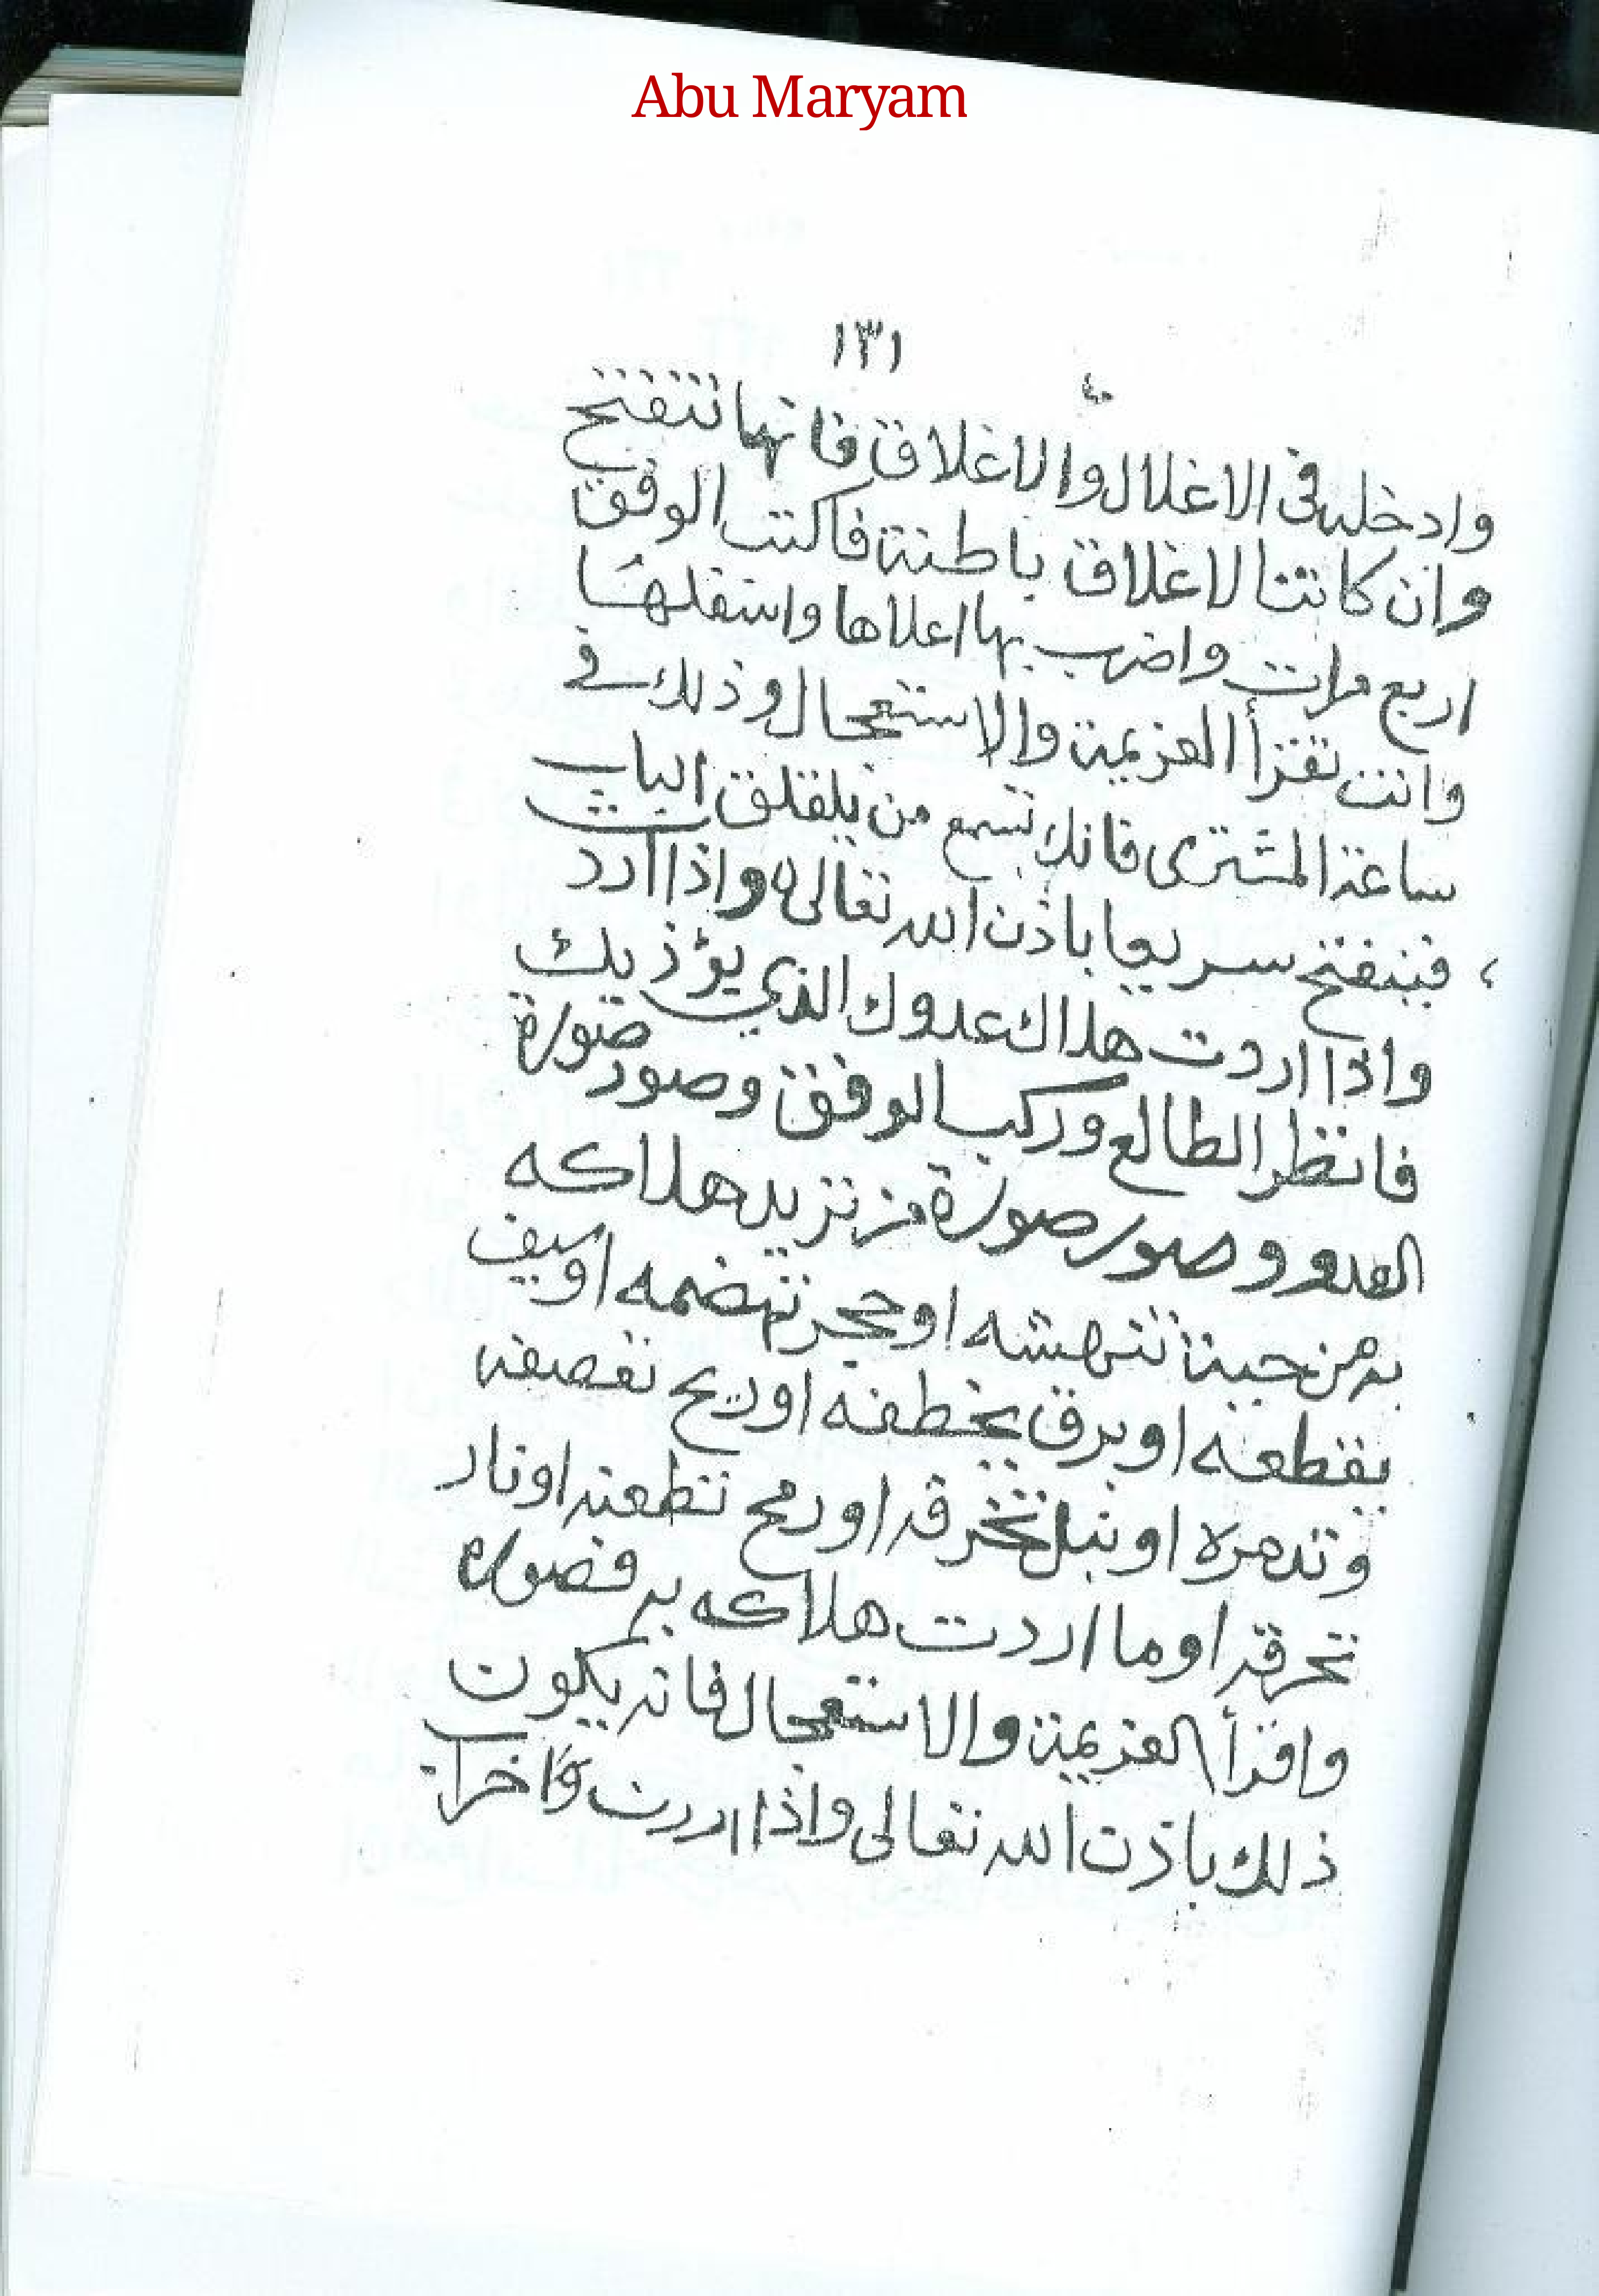 Abu Maryam
١٣١
وادخله فى الاغلال والاغلاق فانها تنفتح
وان كانت الاغلاق باطنة فاكتب الوفق
اربع مرات واضرب بها اعلاها واسفلها
وانت تقرأ العزيمة والاستعجال وذلك فى
ساعة المشترى فانك تسمع من يلقلق الباب
فينفتح سريعا باذن الله تعالى واذا اردت
واذا اردت هلاك عدوك الذي يؤذيك
فانظر الطالع وركب الوفق وصور صورة
العدو وصور صورة من تريد هلاكه
به من حية تنهشه او حجر تهضمه او سيف
يقطعه او برق يخطفه او ريح تقصفه
وتدمره او نبل تخرقه او رمح تطعنه او نار
تحرقه او ما اردت هلاكه به فصوره
واقرأ العزيمة والاستعجال فانه يكون
ذلك باذن الله تعالى واذا اردت